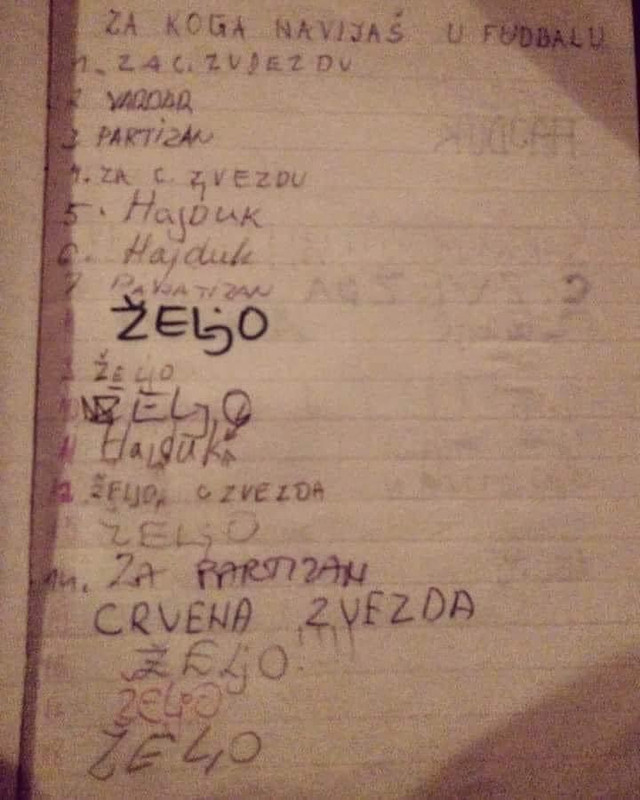 ZA KOGA NAVIJAŠ U FUDBALU
1. ZA C. ZVJEZDU
2 VARDAR
3 PARTIZAN
4. ZA C. ZVEZDU
5. Hajduk
6. Hajduk
7 PARTIZAN
ŽELJO
ŽELJO
ŽELJO
11 Hajduk
12 ŽELJO, C ZVEZDA
ŽELJO
14. ZA PARTIZAN
CRVENA ZVEZDA
ŽELJO!!!!
ŽELJO
ŽELJO